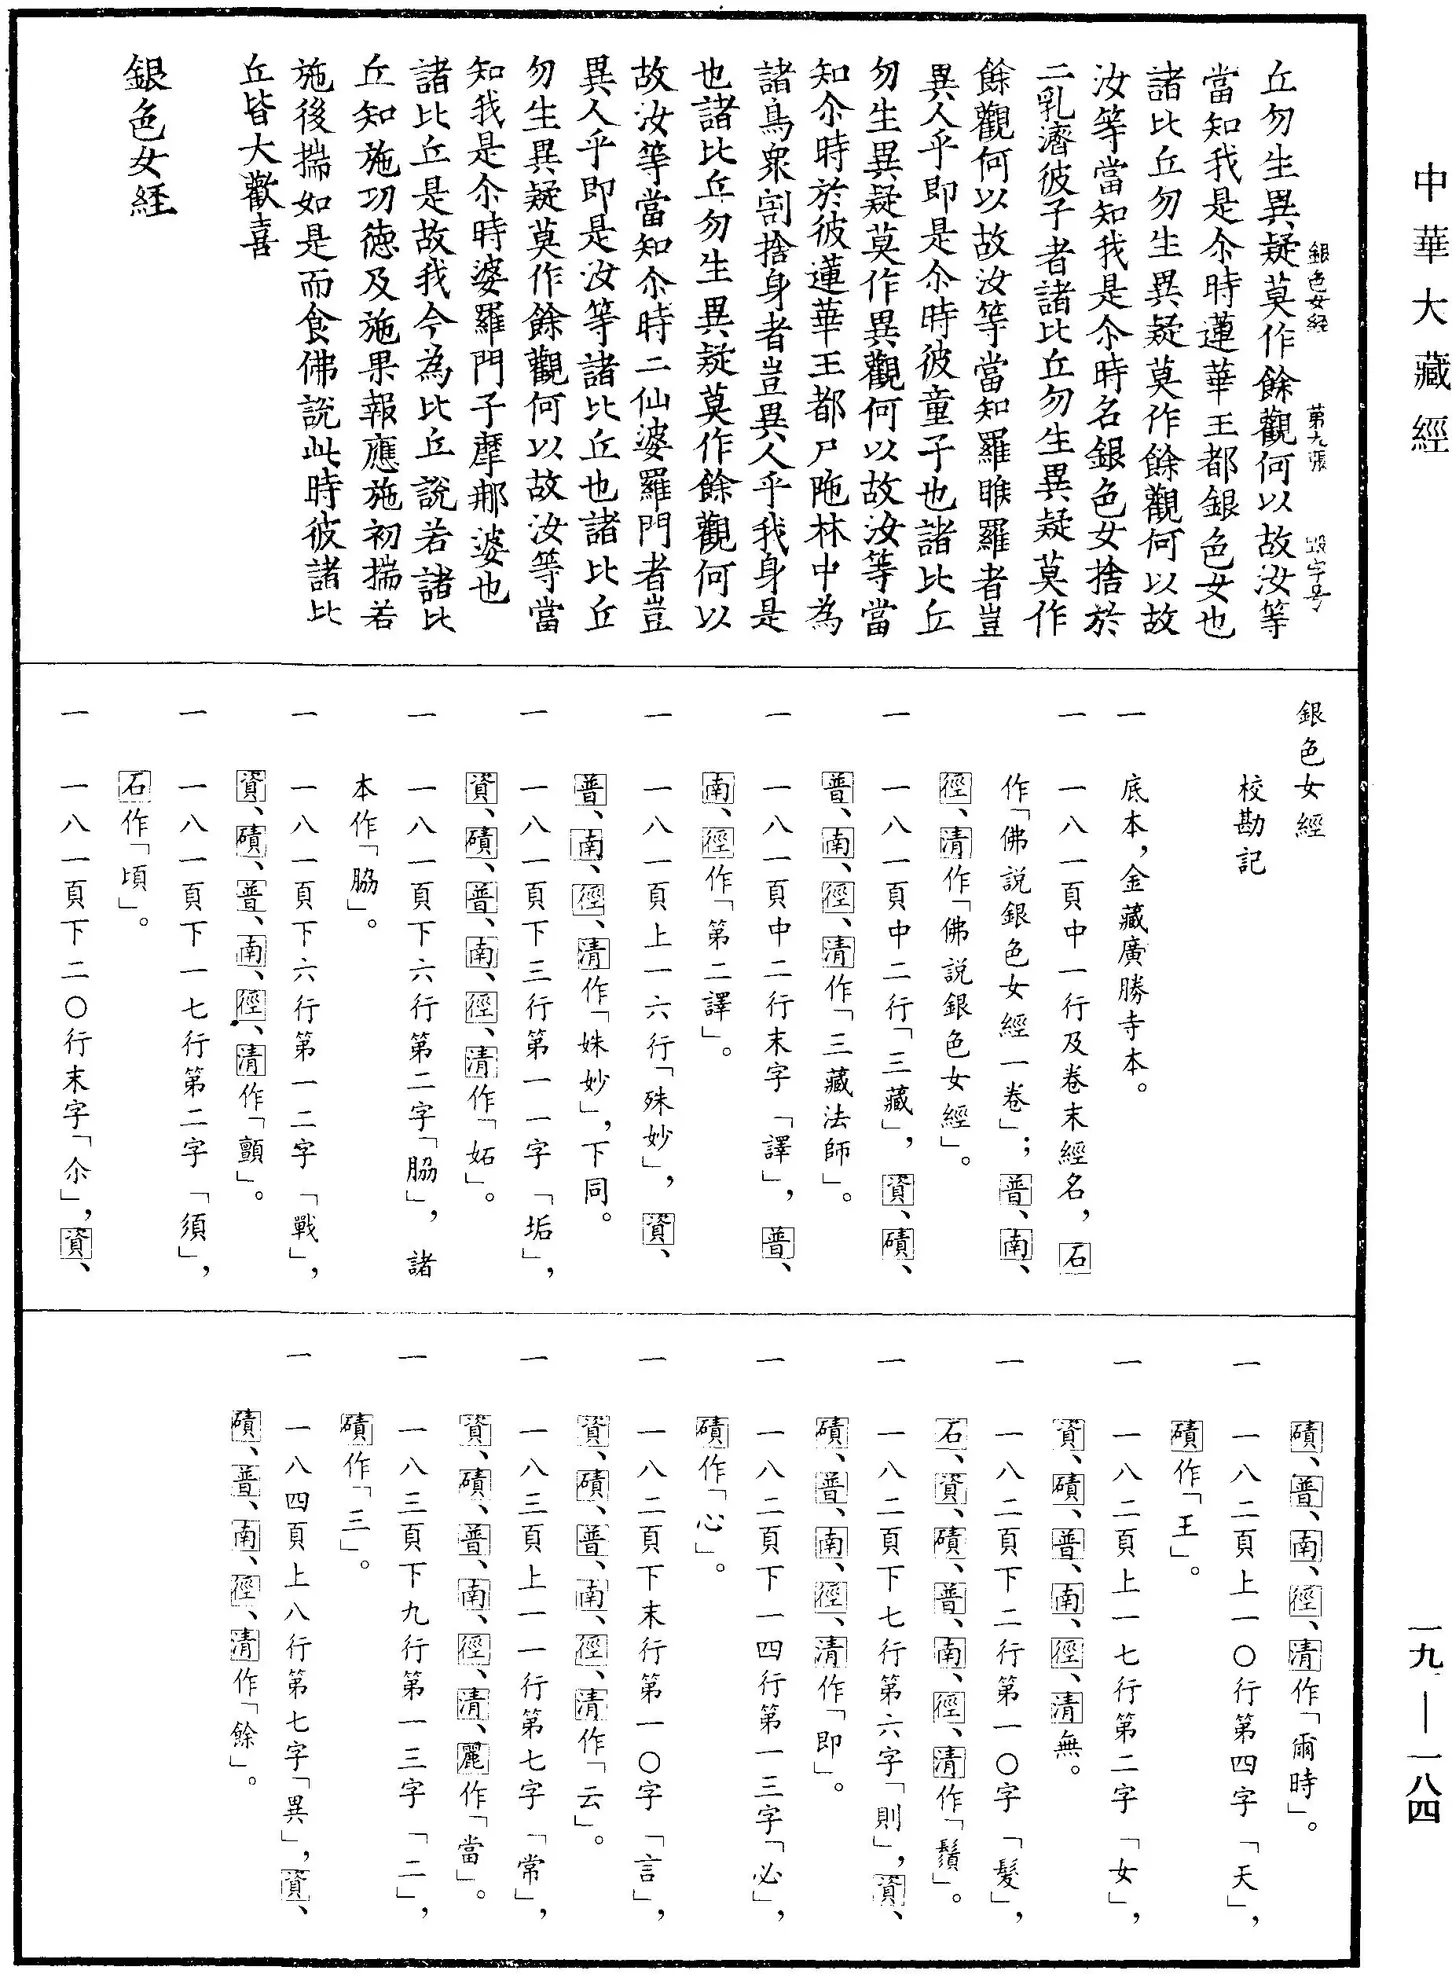 中華大藏經
銀色女經　第九張　毀字号
丘勿生異疑莫作餘觀何以故汝等
當知我是尒時蓮華王都銀色女也
諸比丘勿生異疑莫作餘觀何以故
汝等當知我是尒時名銀色女捨於
二乳濟彼子者諸比丘勿生異疑莫作
餘觀何以故汝等當知羅睺羅者豈
異人乎即是尒時彼童子也諸比丘
勿生異疑莫作異觀何以故汝等當
知尒時於彼蓮華王都尸陁林中為
諸鳥衆割捨身者豈異人乎我身是
也諸比丘勿生異疑莫作餘觀何以
故汝等當知尒時二仙婆羅門者豈
異人乎即是汝等諸比丘也諸比丘
勿生異疑莫作餘觀何以故汝等當
知我是尒時婆羅門子摩那婆也
諸比丘是故我今為比丘說若諸比
丘知施功德及施果報應施初揣若
施後揣如是而食佛說此時彼諸比
丘皆大歡喜
銀色女經
銀色女經
校勘記
一　底本，金藏廣勝寺本。
一　一八一頁中一行及卷末經名，石
作「佛說銀色女經一卷」；普、南、
徑、清作「佛說銀色女經」。
一　一八一頁中二行「三藏」，資、磧、
普、南、徑、清作「三藏法師」。
一　一八一頁中二行末字「譯」，普、
南、徑作「第二譯」。
一　一八一頁上一六行「殊妙」，資、
普、南、徑、清作「姝妙」，下同。
一　一八一頁下三行第一一字「垢」，
資、磧、普、南、徑、清作「妬」。
一　一八一頁下六行第二字「脇」，諸
本作「脇」。
一　一八一頁下六行第一二字「戰」，
資、磧、普、南、徑、清作「顫」。
一　一八一頁下一七行第二字「須」，
石作「頃」。
一　一八一頁下二〇行末字「尒」，資、
磧、普、南、徑、清作「爾時」。
一　一八二頁上一〇行第四字「天」，
磧作「王」。
一　一八二頁上一七行第二字「女」，
資、磧、普、南、徑、清無。
一　一八二頁下二行第一〇字「髮」，
石、資、磧、普、南、徑、清作「鬚」。
一　一八二頁下七行第六字「則」，資、
磧、普、南、徑、清作「即」。
一　一八二頁下一四行第一三字「必」，
磧作「心」。
一　一八二頁下末行第一〇字「言」，
資、磧、普、南、徑、清作「云」。
一　一八三頁上一一行第七字「常」，
資、磧、普、南、徑、清、麗作「當」。
一　一八三頁下九行第一三字「二」，
磧作「三」。
一　一八四頁上八行第七字「異」，資、
磧、普、南、徑、清作「餘」。
一九——一八四